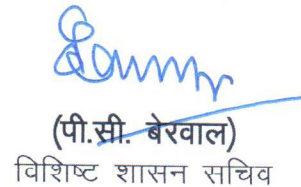 (पी.सी. बेरवाल)
विशिष्ट शासन सचिव